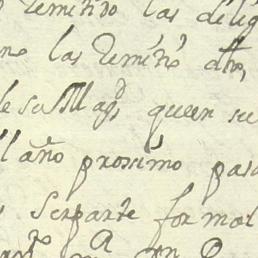 remitido las dilig
las remitió dho,
de su Mag.d que en su
el año prossimo pasa
ser parte formal